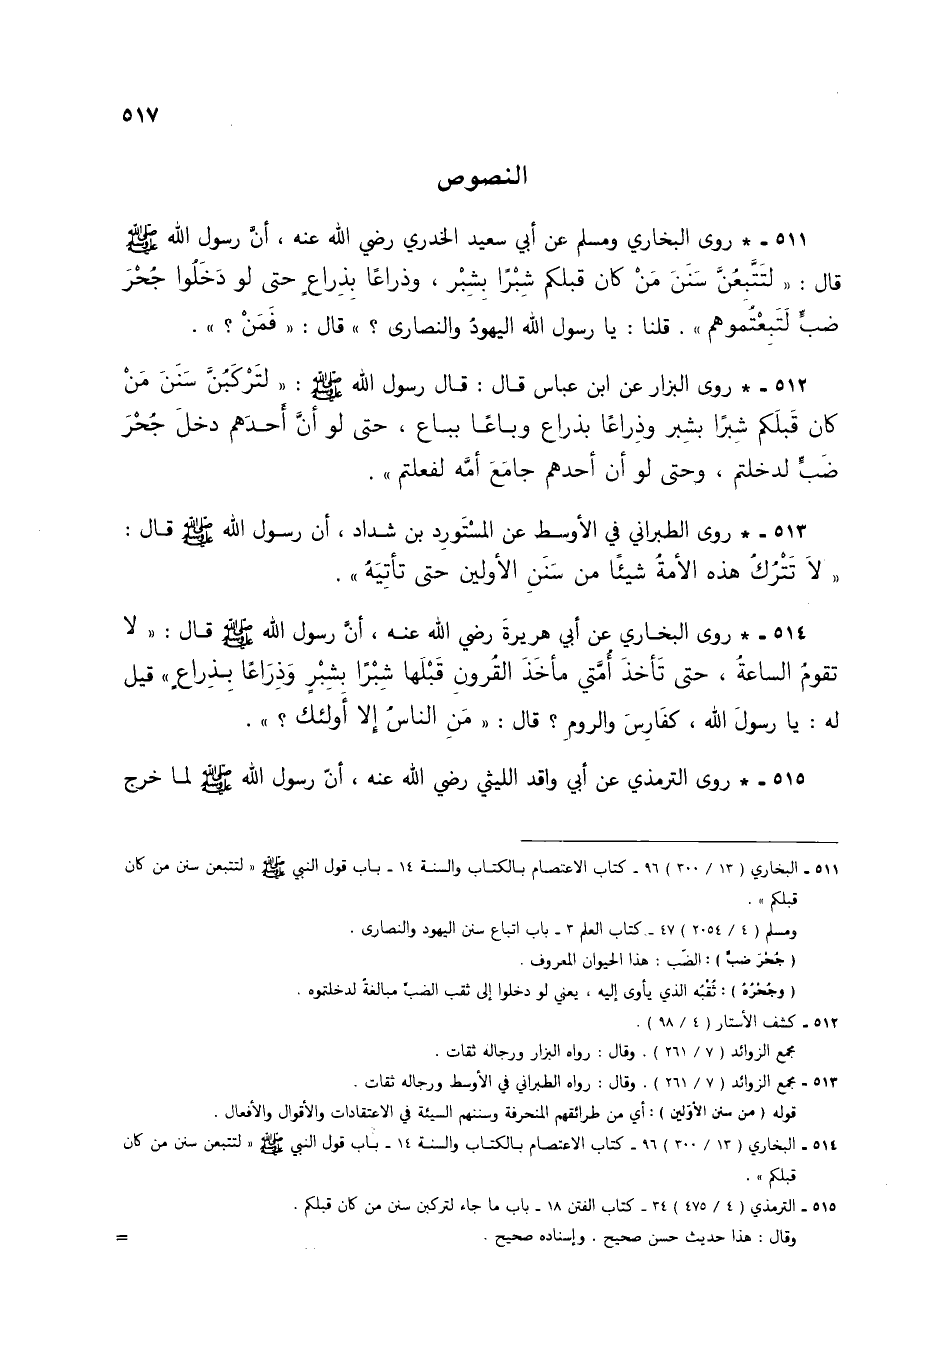 ٥١٧
النصوص
٥١١ ـ * روى البخاري ومسلم عن أبي سعيد الخدري رضي الله عنه ، أنَّ رسول الله ﷺ
قال : « لَتَتَّبِعُنَّ سَنَنَ مَنْ كان قبلكم شِبْرًا بِشِبْر ، وذراعًا بِذِراعٍ حتى لو دَخَلُوا جُحْرَ
ضبٍّ لَتَبِعْتُموهم » . قلنا : يا رسول الله اليهودُ والنصارى ؟ » قال : « فَمَنْ ؟ » .
٥١٢ ـ * روى البزار عن ابن عباس قال : قال رسول الله ﷺ : « لتَرْكَبُنَّ سَنَنَ مَنْ
كان قَبلَكم شبرًا بشبر وذِراعًا بذراع وباعًا بباع ، حتى لو أنَّ أحدَهم دخلَ جُحْرَ
ضَبٍّ لدخلتم ، وحتى لو أن أحدهم جامَعَ أمَّه لفعلتم » .
٥١٣ ـ * روى الطبراني في الأوسط عن المسْتَورِد بن شداد ، أن رسول الله ﷺ قال :
« لاَ تَتْرُكُ هذه الأمةُ شيئًا من سَنَنِ الأولين حتى تأتيَهُ » .
٥١٤ ـ * روى البخاري عن أبي هريرةَ رضي الله عنه ، أنَّ رسول الله ﷺ قال : « لا
تقومُ الساعةُ ، حتى تَأخذَ أُمَّتي مأخَذَ القُرونِ قَبْلَها شِبْرًا بِشِبْرٍ وَذِرَاعًا بِذراعٍ » قيل
له : يا رسولَ الله ، كفَارِسَ والرومِ ؟ قال : « مَنِ الناسُ إلا أولئك ؟ » .
٥١٥ ـ * روى الترمذي عن أبي واقد الليثي رضي الله عنه ، أنّ رسول الله ﷺ لما خرج
٥١١ ـ البخاري ( ١٣ / ٣٠٠ ) ٩٦ ـ كتاب الاعتصام بالكتاب والسنة ١٤ ـ باب قول النبي ﷺ « لتتبعن سنن من كان
قبلكم » .
ومسلم ( ٤ / ٢٠٥٤ ) ٤٧ ـ كتاب العلم ٣ ـ باب اتباع سنن اليهود والنصارى .
( جُحْرَ ضبٍّ ) : الضّب : هذا الحيوان المعروف .
( وجُحْرُهُ ) : ثُقْبُه الذي يأوى إليه ، يعني لو دخلوا إلى ثقب الضبِّ مبالغةً لدخلتموه .
٥١٢ ـ كشف الأستار ( ٤ / ٩٨ ) .
مجمع الزوائد ( ٧ / ٢٦١ ) . وقال : رواه البزار ورجاله ثقات .
٥١٣ ـ مجمع الزوائد ( ٧ / ٢٦١ ) . وقال : رواه الطبراني في الأوسط ورجاله ثقات .
قوله ( من سنن الأوّلين ) : أي من طرائقهم المنحرفة وسننهم السيئة في الاعتقادات والأقوال والأفعال .
٥١٤ ـ البخاري ( ١٣ / ٣٠٠ ) ٩٦ ـ كتاب الاعتصام بالكتاب والسنة ١٤ ـ باب قول النبي ﷺ « لتتبعن سنن من كان
قبلكم » .
٥١٥ ـ الترمذي ( ٤ / ٤٧٥ ) ٣٤ ـ كتاب الفتن ١٨ ـ باب ما جاء لتركبن سنن من كان قبلكم .
وقال : هذا حديث حسن صحيح . وإسناده صحيح . =